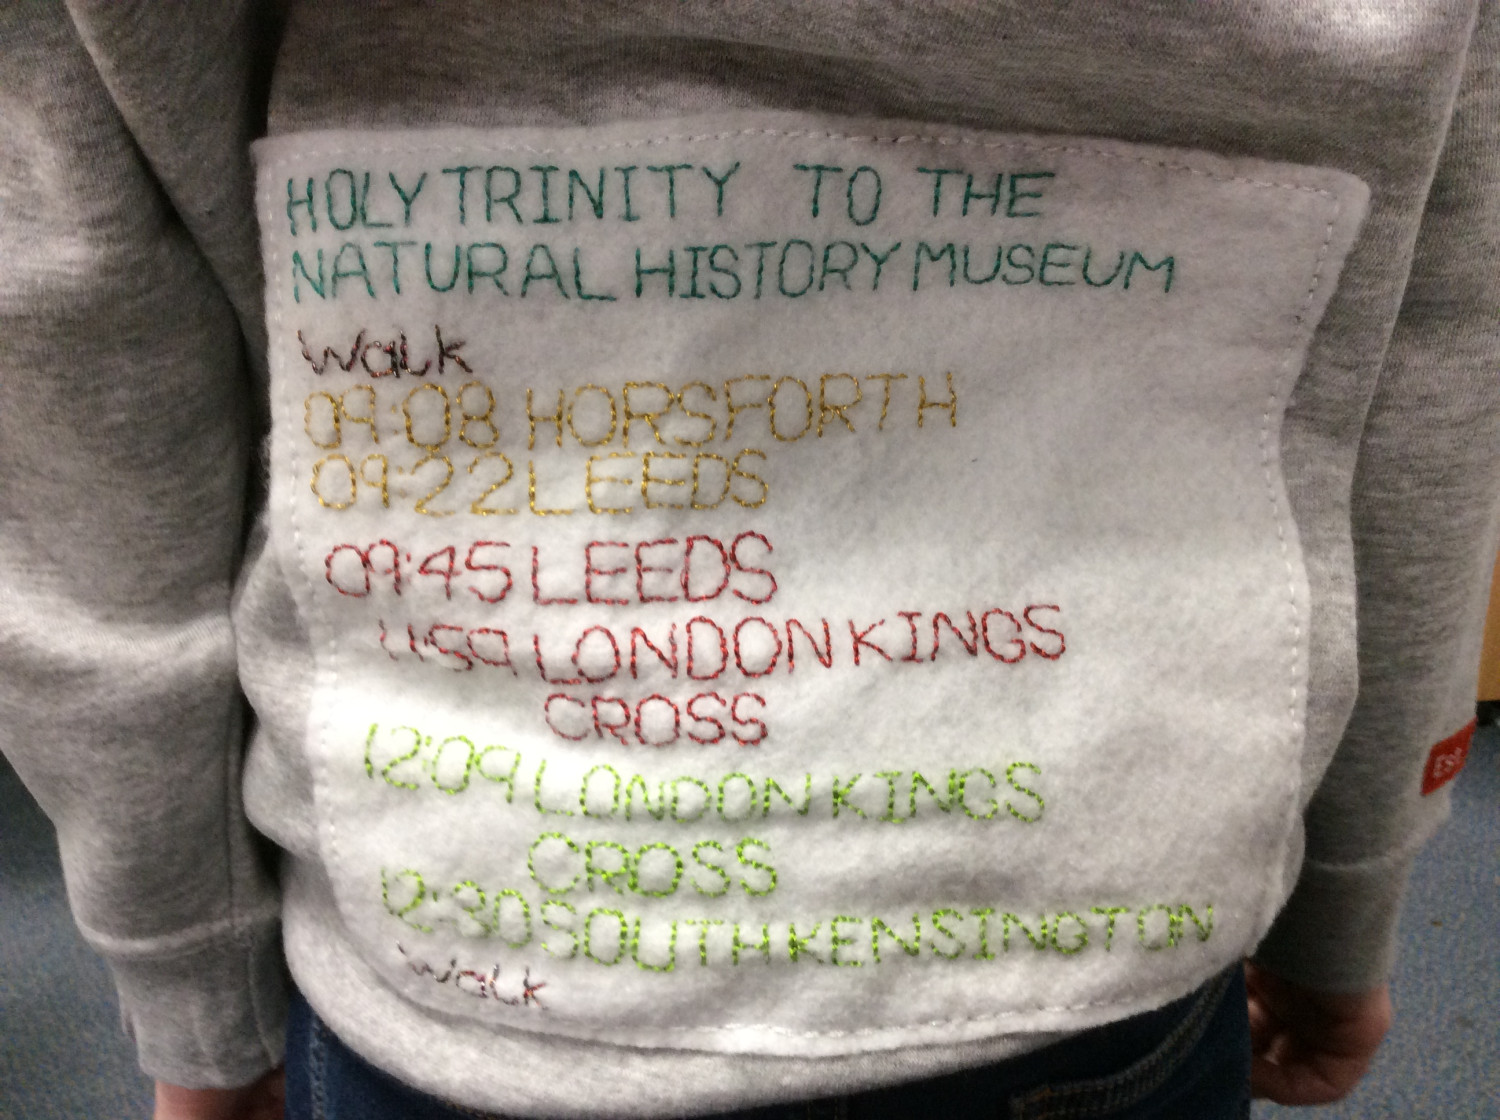 HOLY TRINITY TO THE
NATURAL HISTORY MUSEUM
walk
09:08 HORSFORTH
09:22 LEEDS
09:45 LEEDS
11:59 LONDON KINGS
CROSS
12:09 LONDON KINGS
CROSS
12:30 SOUTH KENSINGTON
walk